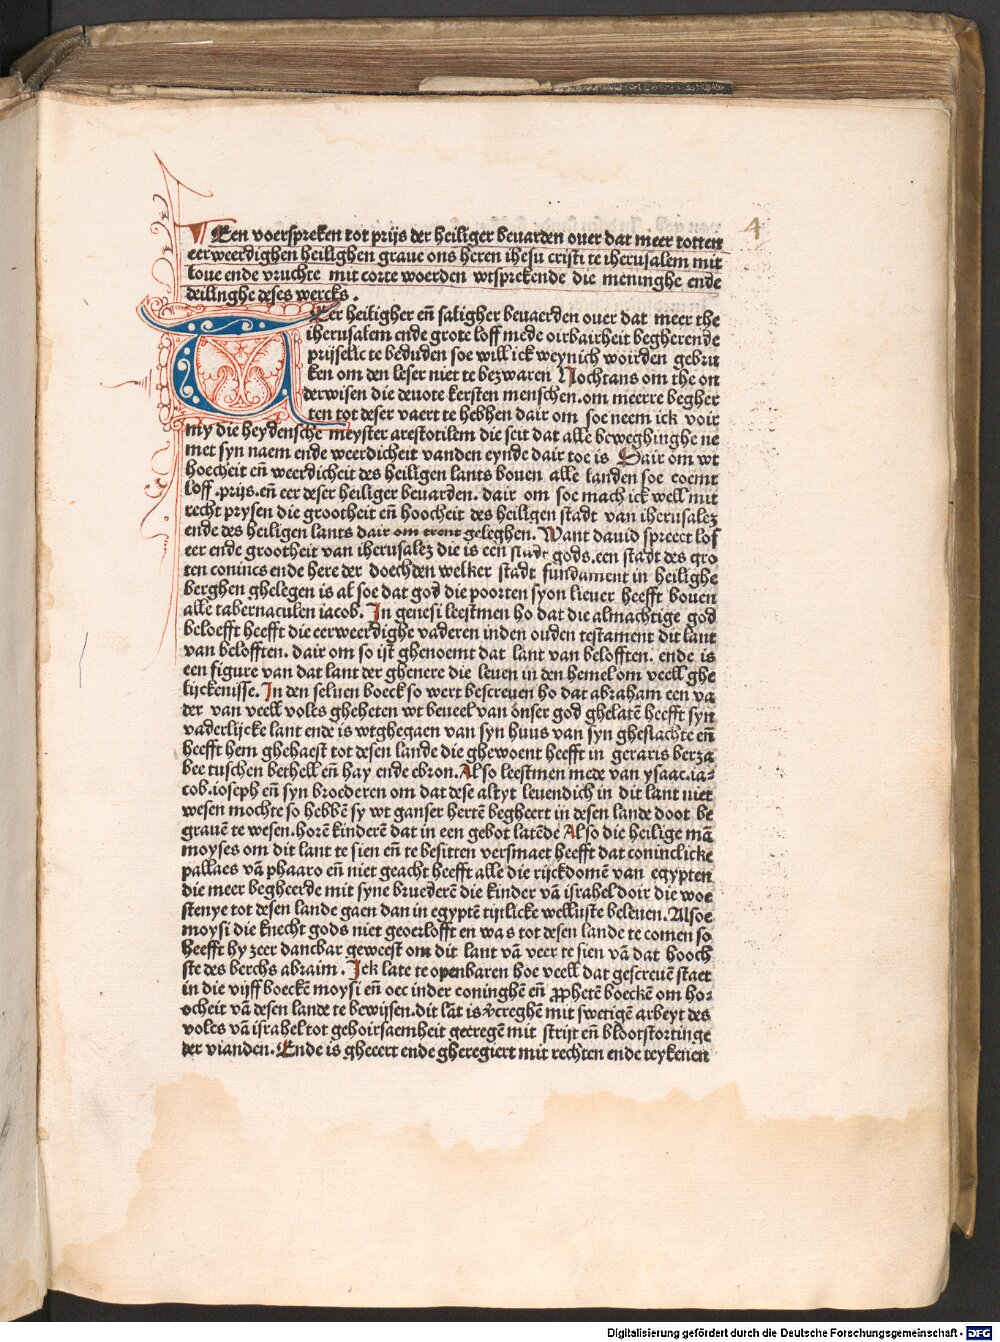 4
Een voerspreken tot prijs der heiliger beuarden ouer dat meer totten
eerweerdighen heilighen graue ons heren ihesu cristi te iherusalem mit
loue ende vruchte mit corte woerden wtsprekende die meninghe ende
deilinghe deses wercks.
Ter heiligher eñ saligher beuaerden ouer dat meer the
iherusalem ende grote loff mede oirbairheit begherende
prijselic te beduden soe will ick weynich woirden gebru
ken om den leser niet te bezwaren Nochtans om the on
derwisen die deuote kersten menschen.om meerre begher
ten tot deser vaert te hebben dair om soe neem ick voir
my die heydensche meyster arestotilem die seit dat alle beweghinghe ne
met syn naem ende weerdicheit vanden eynde dair toe is Dair om wt
hoecheit eñ weerdicheit des heiligen lants bouen alle landen soe coemt
loff.prijs.eñ eer deser heiliger beuarden. dair om soe mach ick well mit
recht prysen die grootheit eñ hoocheit des heiligen stadt van iherusalez
ende des heiligen lants dair om trent geleghen. Want dauid spreect lof
eer ende grootheit van iherusalez die is een stadt gods.een stadt des gro
ten conincs ende here der doechden welker stadt fundament in heilighe
berghen ghelegen is al soe dat god die poorten syon lieuer heefft bouen
alle tabernaculen iacob. In genesi leestmen ho dat die almachtige god
beloefft heefft die eerweerdighe vaderen inden ouden testament dit lant
van belofften. dair om so ist ghenoemt dat lant van belofften. ende is
een figure van dat lant der ghenere die leuen in den hemel om veell ghe
lijckenisse. In den seluen boeck so wert bescreuen ho dat abraham een va
der van veell volks gheheten wt beueel van onser god ghelatē heefft syn
vaderlijcke lant ende is wtghegaen van syn huus van syn gheslachte eñ
heefft hem ghehaest tot desen lande die ghewoent heefft in geraris berza
bee tuschen bethell eñ hay ende ebron. Al so leestmen mede van ysaac.ia-
cob.ioseph eñ syn broederen om dat dese altyt leuendich in dit lant niet
wesen mochte so hebbē sy wt ganser hertē begheert in desen lande doot be
grauē te wesen.horē kinderē dat in een gebot latēde Al so die heilige mā
moyses om dit lant te sien eñ te besitten versmaet heefft dat coninclicke
pallaes vā phaaro eñ niet geacht heefft alle die rijckdomē van egypten
die meer begheerde mit syne bruederē die kinder vā israhel doir die woe
stenye tot desen lande gaen dan in egyptē tijtlicke welluste beleuen. Alsoe
moysi die knecht gods niet geoerlofft en was tot desen lande te comen so
heefft hy zeer dancbar geweest om dit lant vā veer te sien vā dat hooch
ste des berchs abraim. Ick late te openbaren hoe veell dat gescreuē staet
in die vijff boeckē moysi eñ oec inder coninghē eñ ꝓphetē boeckē om ho-
ocheit vā desen lande te bewijsen.dit lāt is v̓creghē mit swetigē arbeyt des
volcs vā israhel tot gehoirsaemheit gecregē mit strijt eñ blootstortinge
der vianden. Ende is gheeert ende gheregiert mit rechten ende teykenen
Digitalisierung gefördert durch die Deutsche Forschungsgemeinschaft - DFG